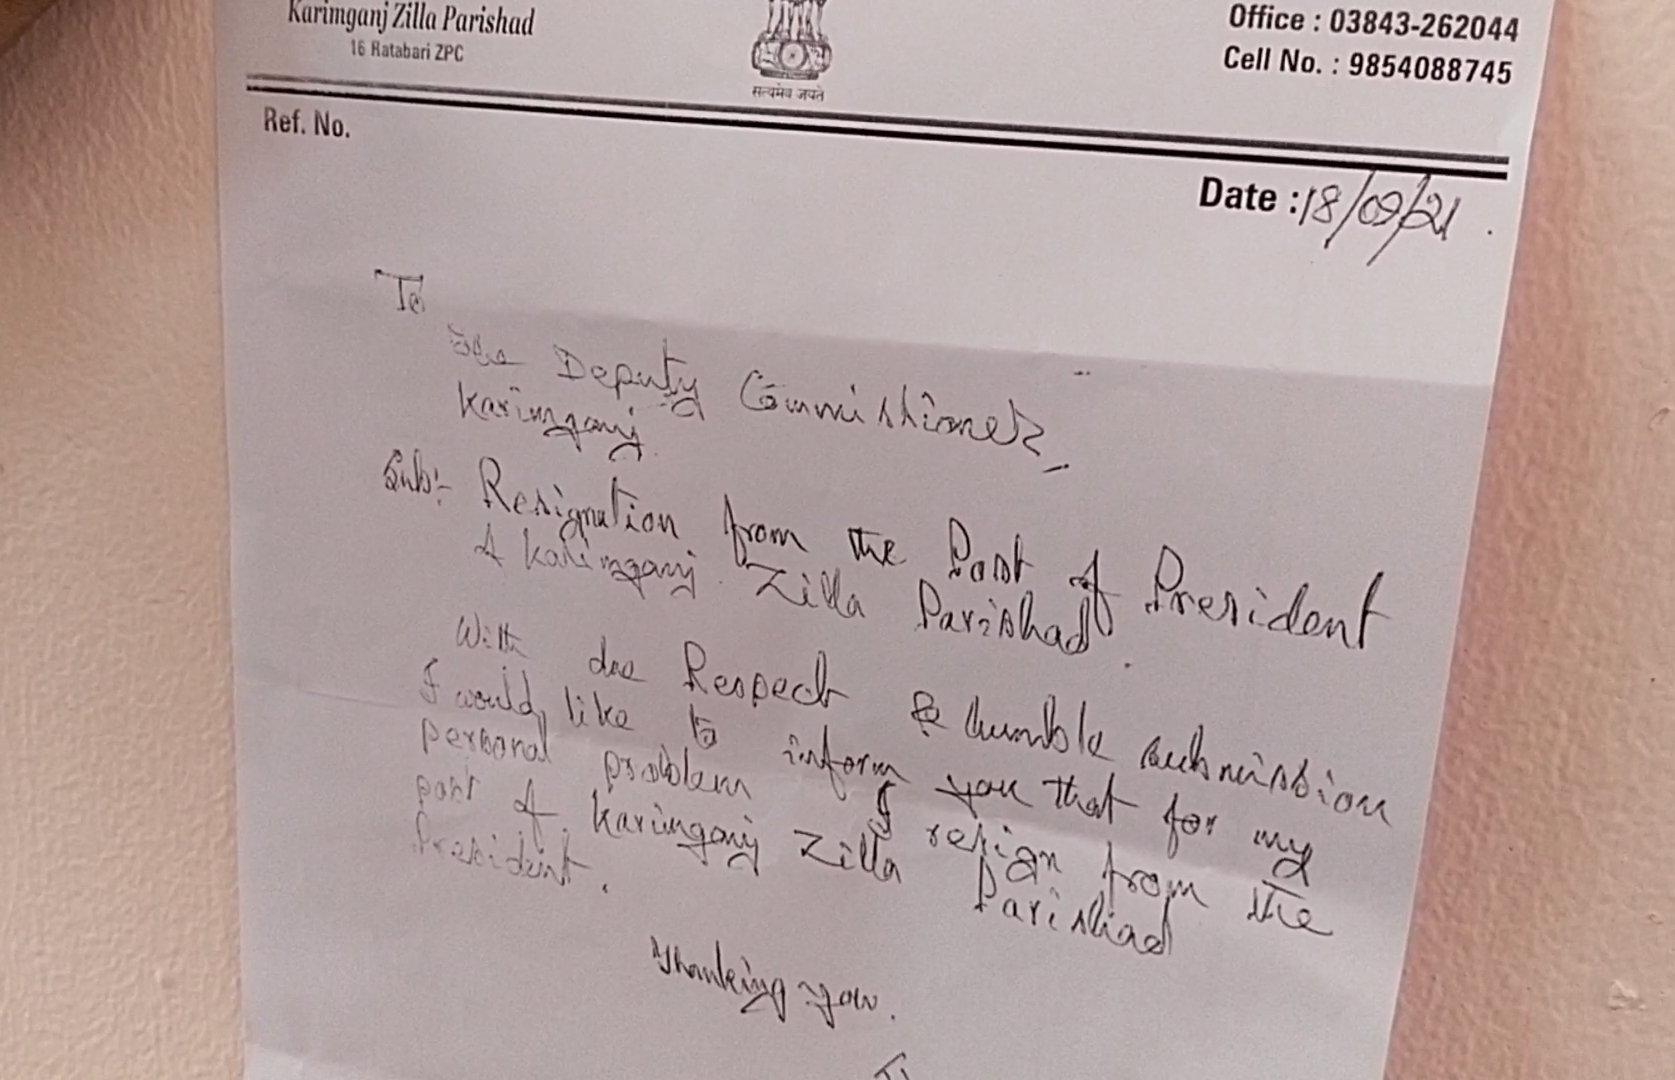 Karimganj Zilla Parishad
16 Ratabari ZPC
सत्यमेव जयते
Office : 03843-262044
Cell No. : 9854088745
Ref. No.
Date : 18/09/21.
To
The Deputy Commissioner,
Karimganj.
Sub:- Resignation from the Post of President
of Karimganj Zilla Parishad.
With due Respect & humble submission
I would like to inform you that for my
personal problem I resign from the
post of Karimganj Zilla Parishad
President.
Thanking you.